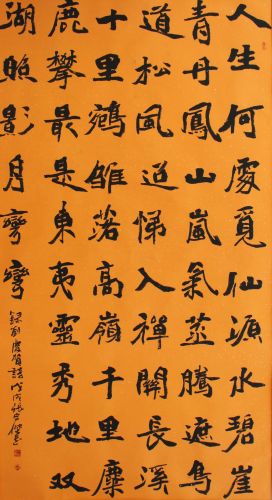 人生何處覓仙源水碧崖
青丹鳳山嵐氣蒸騰遮鳥
道松風迢悌入禪關長溪
十里鵷雛落高嶺千里麋
鹿攀最是東夷靈秀地双
湖照影月彎彎
錄劉詩戊戌